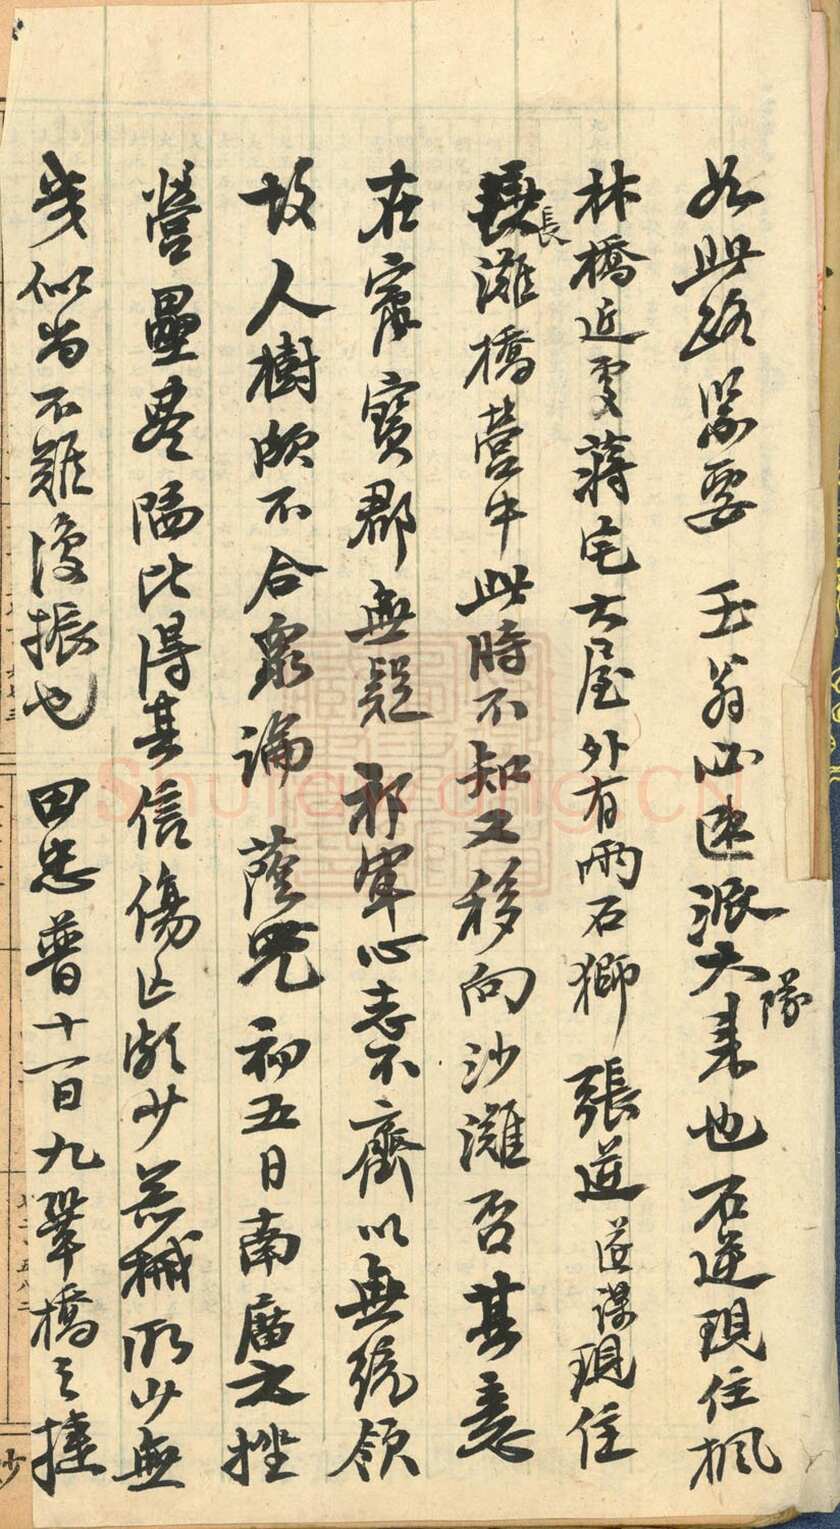 如此路紧要 玉翁必速派大隊来也石逆現住楓
林橋近更蔣宅大屋外有兩石獅 張逆遂謀現住
長灘橋營中此時不知又移向沙灘否其意
在寶郡無疑 祁軍心志不齊以無統領
故人樹頗不合衆論 蔭兄初五日南廟之挫
營壘尽陷比得其信傷亡頗少器械所少無
幾似尚不難復振也 田忠普十一日九鞏橋之捷
Shuge.org.CN